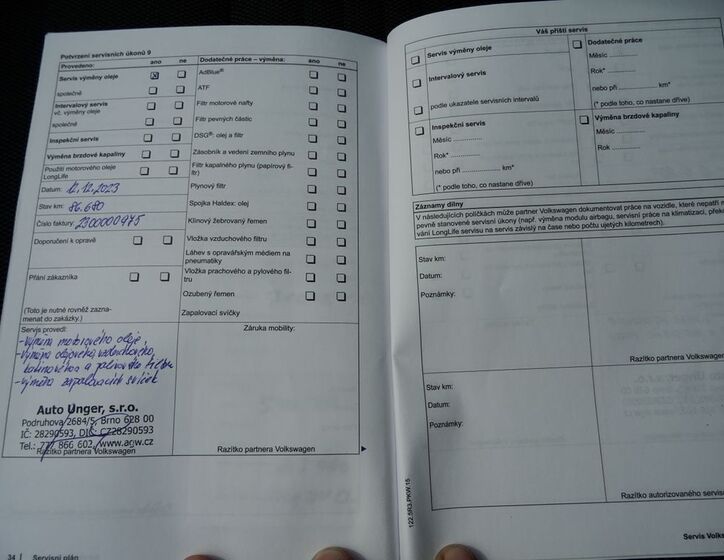 Potvrzení servisních úkonů 9
Provedeno: ano ne
Servis výměny oleje
společně
Intervalový servis
vč. výměny oleje
společně
Inspekční servis
Výměna brzdové kapaliny
Použití motorového oleje
LongLife
Datum: 12.12.2023
Stav km: 86.680
Číslo faktury: 2300000975
Doporučení k opravě
Přání zákazníka
(Toto je nutné rovněž zazna-
menat do zakázky.)
Dodatečné práce – výměna: ano ne
AdBlue®
ATF
Filtr motorové nafty
Filtr pevných částic
DSG®: olej a filtr
Zásobník a vedení zemního plynu
Filtr kapalného plynu (papírový fi-
ltr)
Plynový filtr
Spojka Haldex: olej
Klínový žebrovaný řemen
Vložka vzduchového filtru
Láhev s opravářským médiem na
pneumatiky
Vložka prachového a pylového fil-
tru
Ozubený řemen
Zapalovací svíčky
Servis provedl:
-výměna motorového oleje,
-výměna olejového, vzduchového,
kabinového a palivového filtru
-výměna zapalovacích svíček
Auto Unger, s.r.o.
Podruhova 2684/5, Brno 628 00
IČ: 28290593, DIČ: CZ28290593
866 602, www.agw.cz
Razítko partnera Volkswagen
Záruka mobility:
Razítko partnera Volkswagen
34 | Servisní plán
Váš příští servis
Servis výměny oleje
Intervalový servis
podle ukazatele servisních intervalů
Inspekční servis
Měsíc ..............
Rok* ..............
nebo při .............. km*
(* podle toho, co nastane dříve)
Dodatečné práce
Měsíc ..............
Rok* ..............
nebo při .............. km*
(* podle toho, co nastane dříve)
Výměna brzdové kapaliny
Měsíc ..............
Rok ..............
Záznamy dílny
V následujících políčkách může partner Volkswagen dokumentovat práce na vozidle, které nepatří
pevně stanovené servisní úkony (např. výměna modulu airbagu, servisní práce na klimatizaci,
vání LongLife servisu na servis závislý na čase nebo počtu ujetých kilometrů).
Stav km:
Datum:
Poznámky:
Razítko partnera Volkswagen
Stav km:
Datum:
Poznámky:
Razítko autorizovaného
122.5R3.PKW.15
Servis